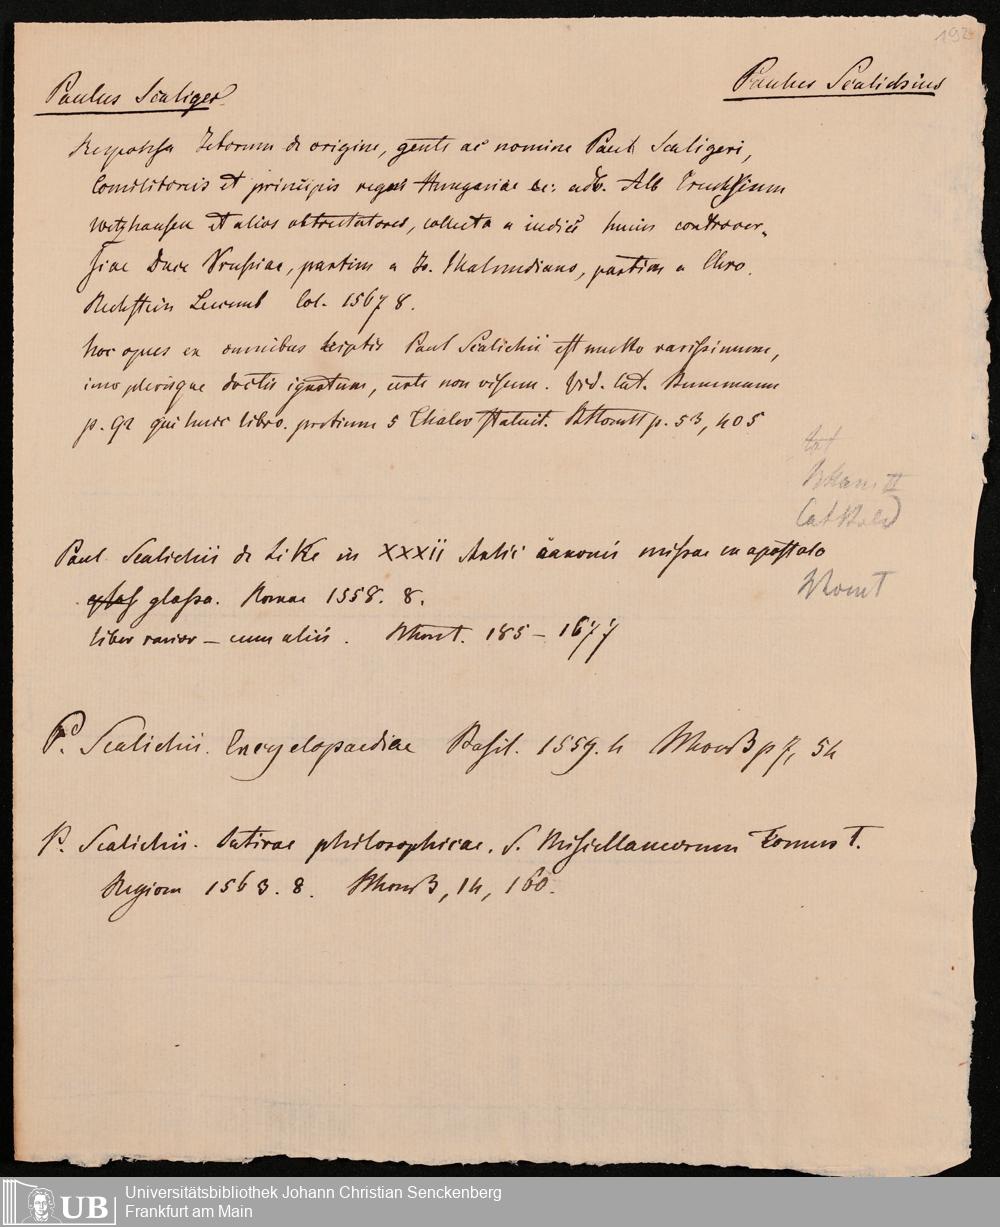 192
Paulus Scaliger
Paulus Scalichius
Responsa Jctorum de origine, gente ac nomine Pauli Scaligeri,
Comilitonis et principis regni Hungariae &c: adv. Alb Truchsium
Wetzhausen et alios obtrectatores, collecta a indice huius controver-
siae Duce Prussiae, partim a Jo. partim a Chro.
Rechstein Col. 1567 8.
hoc opus ex omnibus scriptis Pauli Scalichii est multo rarissimum,
imo plerisque doctis ignotum, certe non visum. vid. Cat. Bunemann
p. 92 qui huic libro pretium 5 Thaler statuit. p. 53, 405
Cat
Paul Scalichii de in XXXII canonis missae
glossa. Romae 1558. 8.
liber rarior – cum aliis . 185 – 1677
P. Scalichii. Encyclopaediae Basil. 1559. 4 p 7, 54
P. Scalichii. Satirae philosophicae. S. Miscellaneorum Tomus I.
Regiom 1563. 8. , 14, 160.
UB
Universitätsbibliothek Johann Christian Senckenberg
Frankfurt am Main